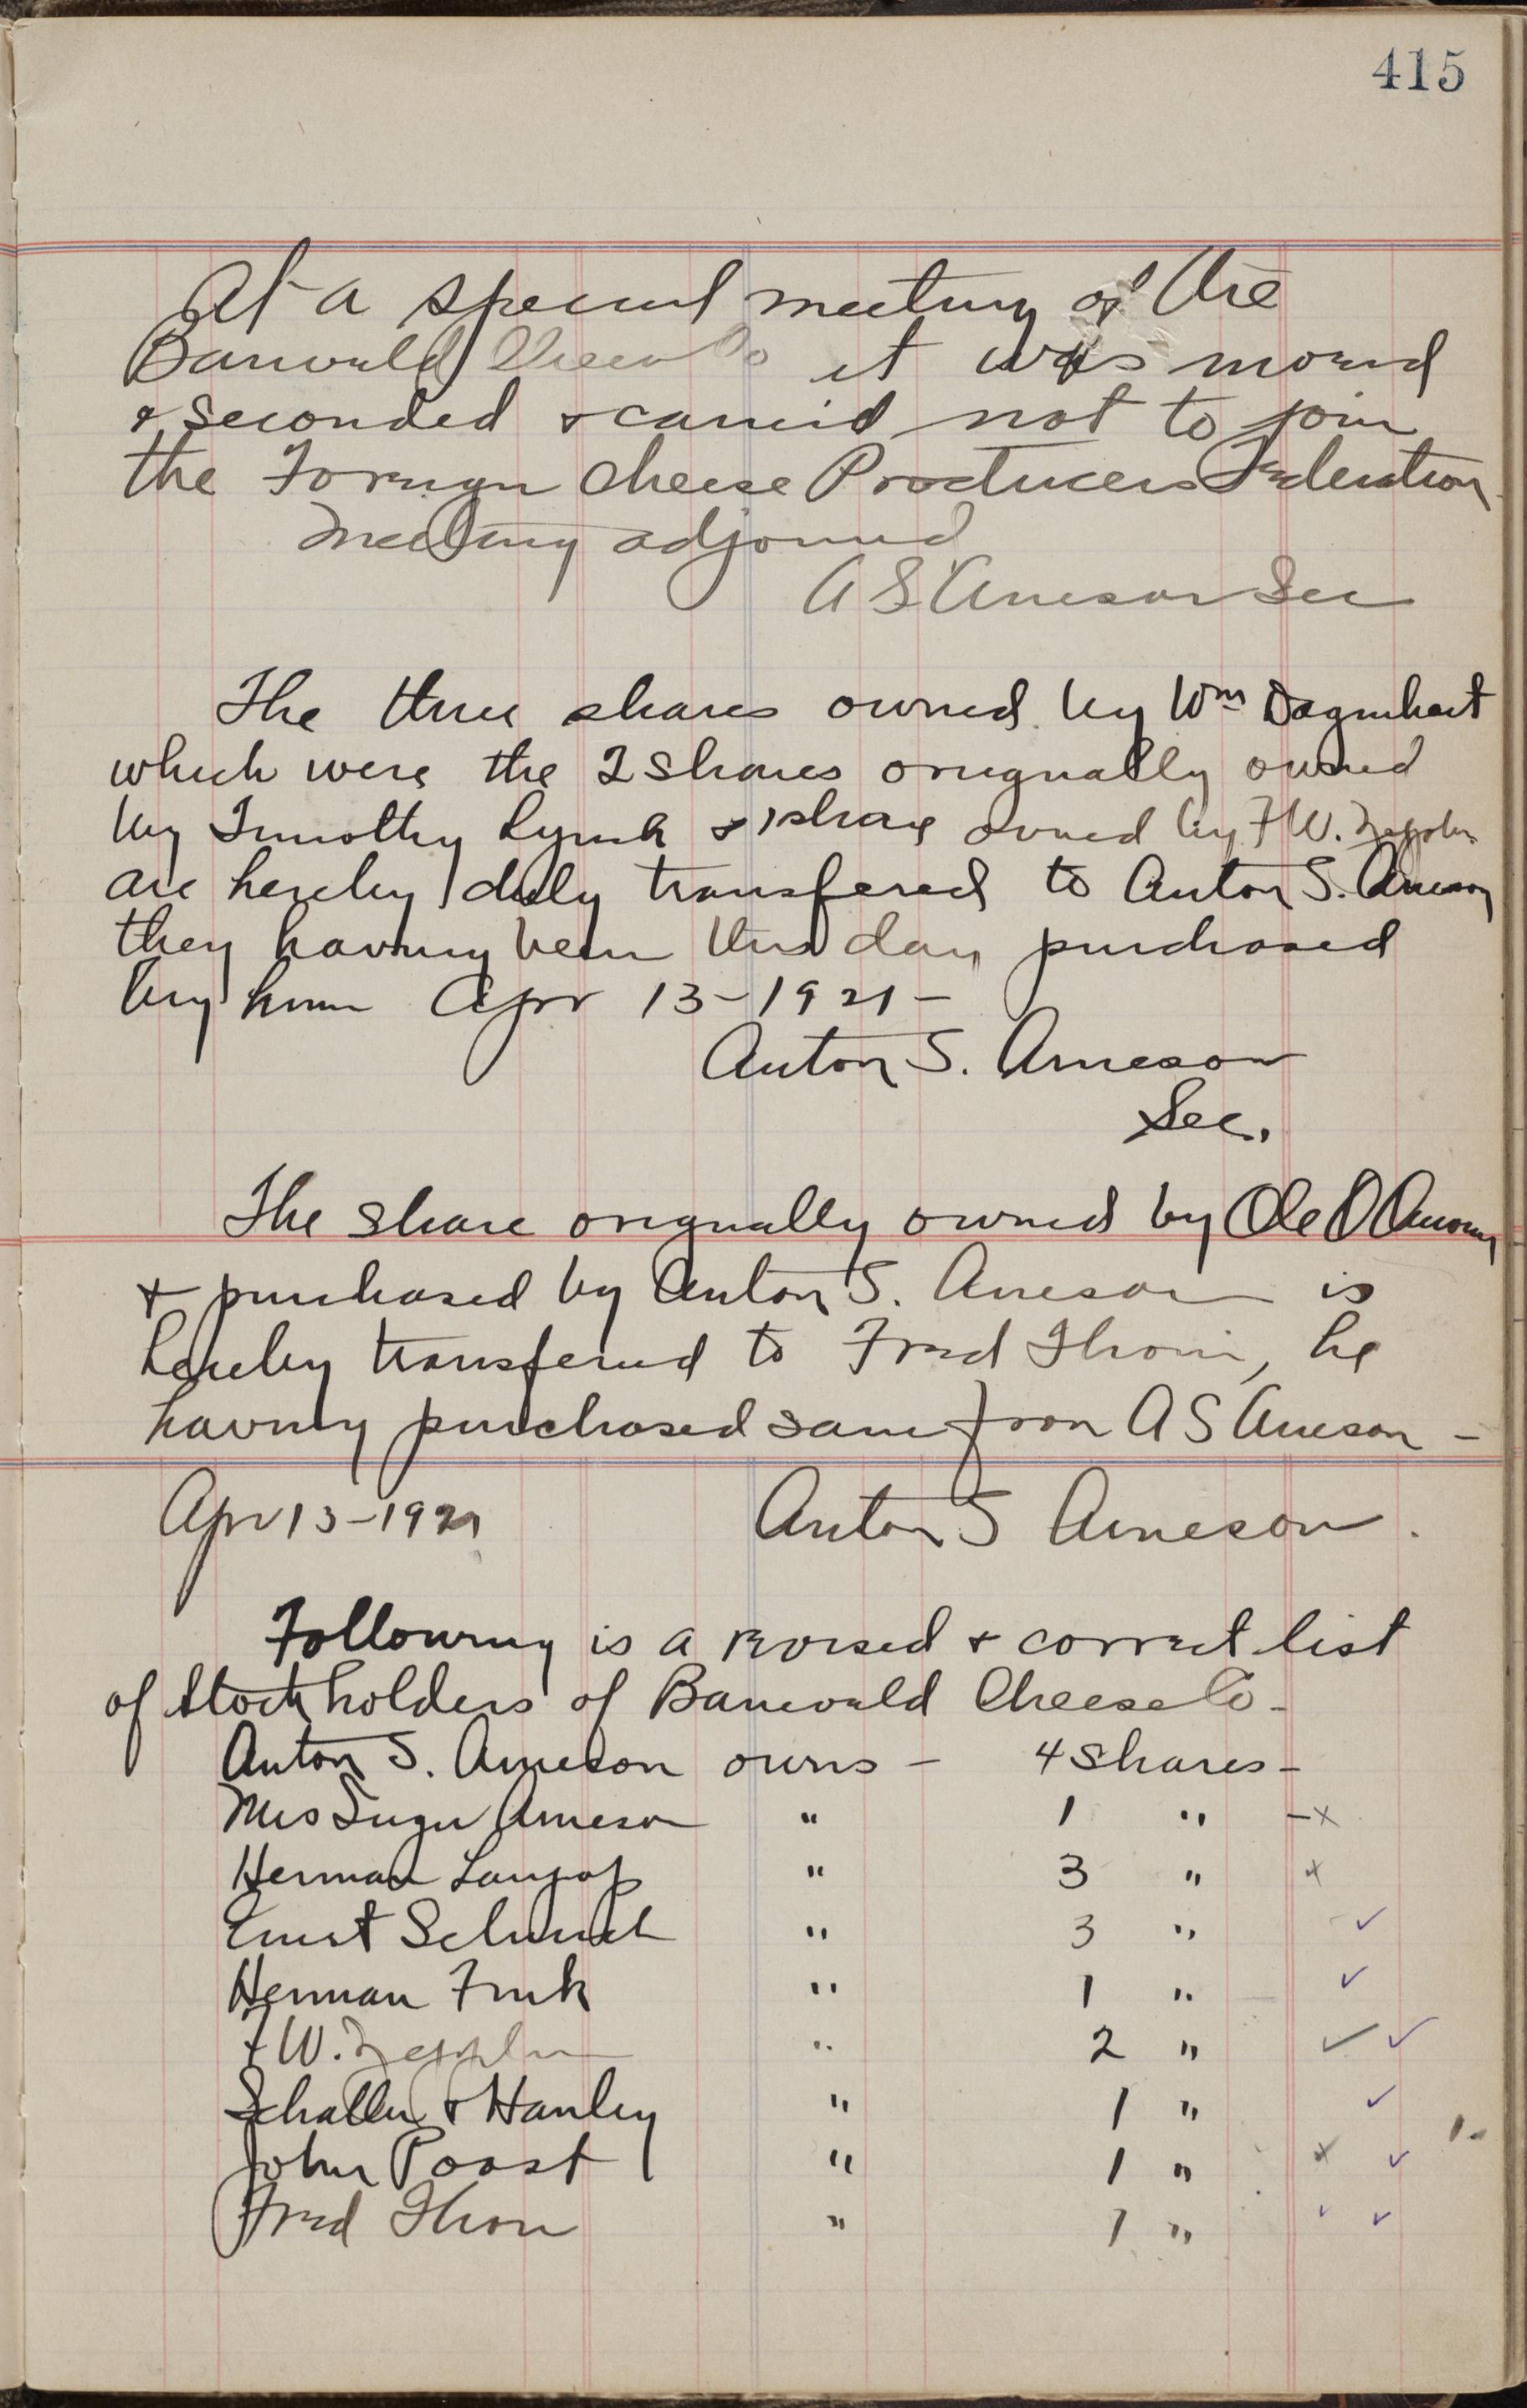 415
At a special meeting of the
Banwald Cheese Co it was moved
& seconded & carried not to join
the Foreign Cheese Producers Federation
Meeting adjourned
A S Arneson Sec
The three shares owned by Wm Dagenhart
which were the 2 shares originally owned
by Timothy Lynch & 1 share owned by F W. Zepplin
are hereby duly transfered to Anton S. Arneson
they having been this day purchased
by him Apr 13-1921-
Anton S. Arneson
Sec.
The share originally owned by Ole O Arneson
& purchased by Anton S. Arneson is
hereby transfered to Fred Thom, he
having purchased same from A S Arneson -
Apr 13-1921 Anton S Arneson.
Following is a revised & correct list
of Stockholders of Banwald Cheese Co-
Anton S. Arneson owns - 4 Shares-
Mrs Arneson " 1 " -x
Herman " 3 " x
Ernst " 3 " ✓
Herman Funk " 1 " ✓
F W. Zepplin " 2 " ✓ ✓
Schaller & Hanley " 1 " ✓
John Poast " 1 " x ✓
Fred Thom " 1 " ✓ ✓